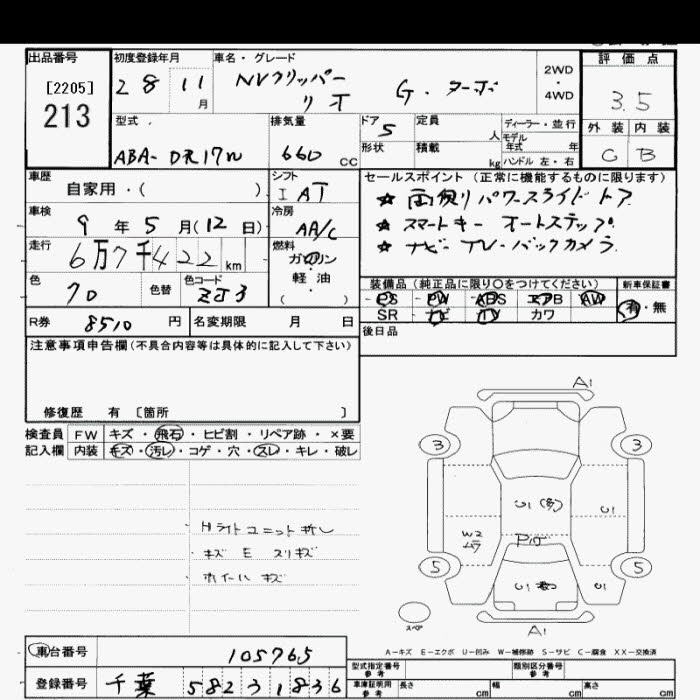 出品番号 初度登録年月 車名・グレード 評価点
[2205] 28 11月 NVクリッパーリオ G・ターボ 2WD・4WD 3.5
213
型式 排気量 ドア 定員 ディーラー・並行 外装 内装
ABA-DR17W 660cc 5 人 モデル年式 年 C B
形状 積載 kg ハンドル 左・右
車歴 シフト セールスポイント(正常に機能するものに限ります)
自家用・( ) I AT ☆ 両側パワースライドドア
車検 冷房 ☆ スマートキー オートステップ
9年5月(12日) AA/C ☆ ナビ TV バックカメラ
走行 燃料
6万7千422km ガソリン・軽油・( )
色 色替 色コード 装備品(純正品に限り○をつけてください) 新車保証書
クロ ZJ3 PS PW ABS エアB AW 有・無
SR ナビ TV カワ
R券 8510円 名変期限 月 日 後日品
注意事項申告欄(不具合内容等は具体的に記入して下さい)
修復歴 有〔箇所 〕
検査員 FW キズ・飛石・ヒビ割・リペア跡・×要
記入欄 内装 キズ・汚レ・コゲ・穴・スレ・キレ・破レ
Hライトユニット折レ
キズ E スリキズ
ホイール キズ
A1
3 3
U1(多) U1
W2
ムラ
5 5
U1 U1
スペア
A1
A-キズ E-エクボ U-凹み W-補修跡 S-サビ C-腐食 XX-交換済
車台番号 105765
登録番号 千葉 582 3 1836
型式指定番号 参考 類別区分番号 参考
車庫証明用 参考 長さ cm 幅 cm 高さ cm